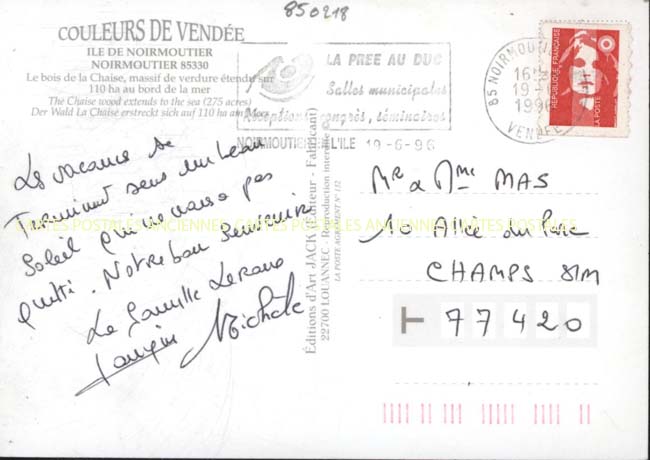 850218
COULEURS DE VENDÉE
ILE DE NOIRMOUTIER
NOIRMOUTIER 85330
Le bois de la Chaise, massif de verdure étendu sur
110 ha au bord de la mer
The Chaise wood extends to the sea (275 acres)
Der Wald La Chaise erstreckt sich auf 110 ha am Meer
LA PREE AU DUC
Salles municipales
Réceptions, congrès, séminaires
NOIRMOUTIER EN L'ILE 19-6-96
85 NOIRMOUTI
16
19
199
VENDEE
REPUBLIQUE FRANÇAISE
LA POSTE
Les vacances se
Terminent sous un beau
Soleil qui ne nous a pas
quitté. Notre bon souvenir
La famille
Michèle
Éditions d'Art JACK (Éditeur - Fabricant)
22700 LOUANNEC - Reproduction interdite ©
LA POSTE AGREMENT N° 112
Mr & Mme MAS
10 Allée du Parc
CHAMPS S/M
77420
CARTES POSTALES ANCIENNES CARTES POSTALES ANCIENNES CARTES POSTALES ANCIENNES